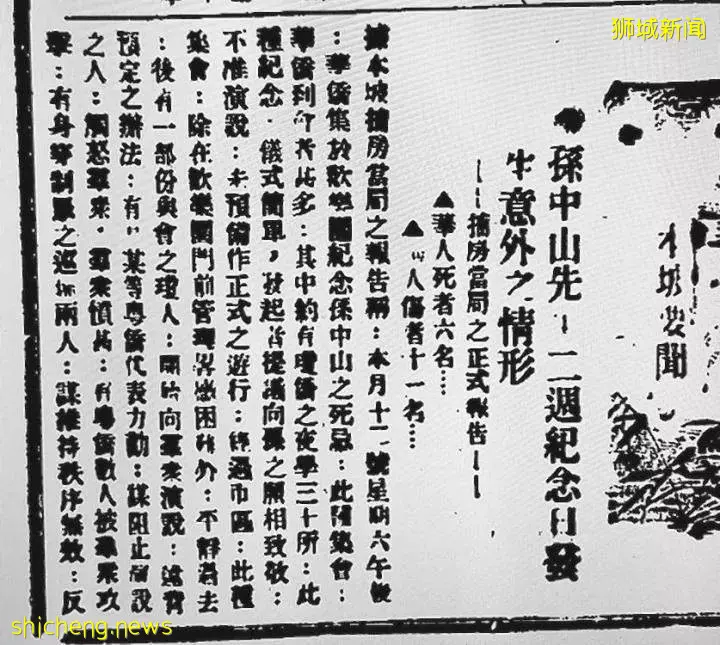 狮城新闻
本坡要聞
●孫中山先生二週紀念日發
生意外之情形
——播房當局之正式報告——
▲華人死者六名…
▲人傷者十一名…
據本坡播房當局之報告稱：本月十二號星期六午後
：華僑集於歡樂園紀念孫中山之死忌：此集會：
華僑到會者甚多：其中約有瓊僑之夜學三十所：此
種紀念．儀式簡單，發起者提議向孫之願相致敬：
不准演說：未預備作正式之遊行：經過市區：此種
集會：除在歡樂園門前管理畧感困難外：平靜過去
：後有一部份與會之瓊人：開始向羣衆演說：違背
預定之辦法：有某等粵僑代表力勸：謀阻止演說
之人：觸怒羣衆，羣衆憤甚：有粵僑數人被羣衆攻
擊：有身穿制服之巡捕兩人：謀維持秩序無效：反
shicheng.news